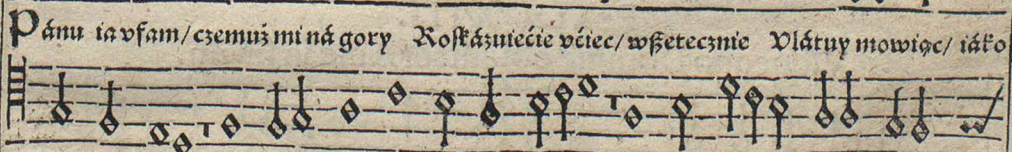 Pánu ia vfam/ czemuż mi ná gory Roſkázuiećie vćiec/ wßetecznie Vlátuy mowiąc/ iáko